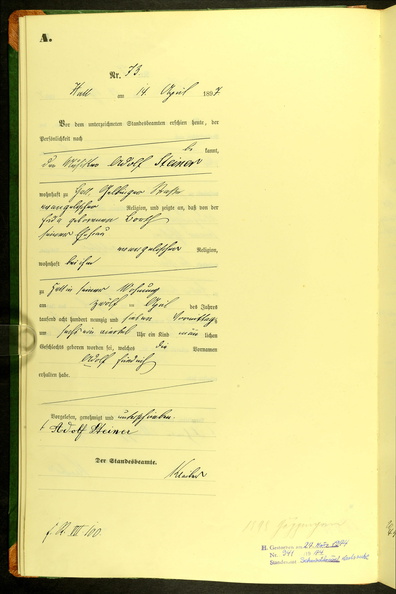 A.
Nr. 73
Hall am 14 April 1897
Vor dem unterzeichneten Standesbeamten erschien heute, der
Persönlichkeit nach
be kannt,
der Adolf Steiner
wohnhaft zu Hall, Gelbinger
evangelischer Religion, und zeigte an, daß von der
geborenen
seiner Ehefrau
evangelischer Religion,
wohnhaft bei ihm
zu Hall in seiner Wohnung
am zwölf ten April des Jahres
tausend acht hundert neunzig und sieben Vormittags
um sechs ein viertel Uhr ein Kind männ lichen
Geschlechts geboren worden sei, welches die Vornamen
Adolf Friedrich
erhalten habe.
Vorgelesen, genehmigt und unterschrieben
Adolf Steiner
Der Standesbeamte.
Nr. 341
Standesamt